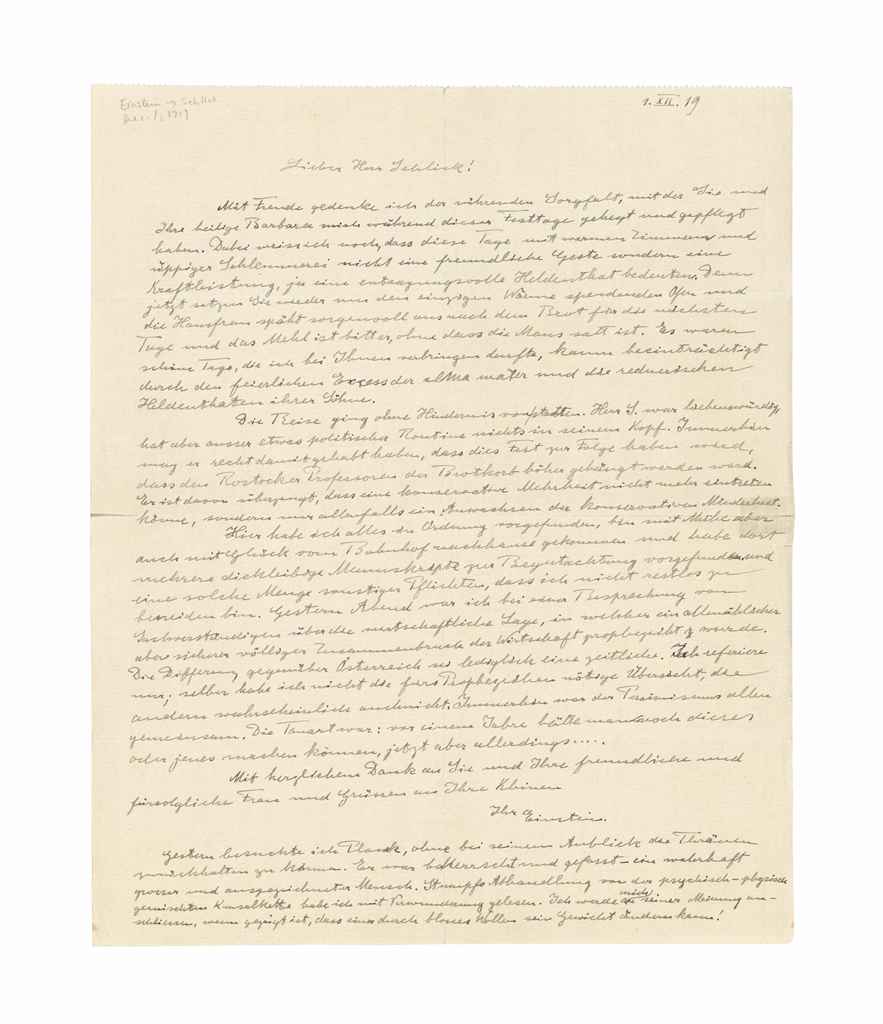 Einstein → Schlick
Dec. 1, 1919
1. XII. 19
Lieber Herr Schlick!
Mit Freude gedenke ich der rührenden Sorgfalt, mit der Sie und
Ihre heilige Barbara mich während dieser Festtage gehegt und gepflegt
haben. Dabei weiss ich wohl, dass diese Tage mit warmen Zimmern und
üppiger Schlemmerei nicht eine freundliche Geste sondern eine
Kraftleistung, ja eine entsagungsvolle Heldenthat bedeuten. Denn
jetzt sitzen Sie wieder um den einzigen Wärme spendenden Ofen und
die Hausfrau späht sorgenvoll aus nach dem Brot für die nächsten
Tage und das Mehl ist bitter, ohne dass die Maus satt ist. Es waren
schöne Tage, die ich bei Ihnen verbringen durfte, kaum beeinträchtigt
durch den feierlichen Excess der alma mater und die rednerischen
Heldenthaten ihrer Söhne.
Die Reise ging ohne Hindernis von statten. Herr S. war liebenswürdig,
hat aber ausser etwas politischer Routine nichts in seinem Kopf. Immerhin
mag er recht damit gehabt haben, dass dies Fest zur Folge haben wird,
dass den Rostocker Professoren der Brotkorb höher gehängt werden wird.
Er ist davon überzeugt, dass eine konservative Mehrheit nicht mehr eintreten
könne, sondern nur allenfalls ein Anwachsen der konservativen Minderheit.
Hier habe ich alles in Ordnung vorgefunden, bin mit Mühe aber
auch mit Glück vom Bahnhof nachhause gekommen und habe dort
mehrere dickleibige Manuskripte zur Begutachtung vorgefunden und
eine solche Menge sonstiger Pflichten, dass ich nicht restlos zu
beneiden bin. Gestern Abend war ich bei einer Besprechung von
Sachverständigen über die wirtschaftliche Lage, in welcher ein allmählicher
aber sicherer völliger Zusammenbruch der Wirtschaft prophezeiht wurde.
Die Differenz gegenüber Österreich sei lediglich eine zeitliche. Ich referiere
nur; selber habe ich nicht die fürs Prophezeihen nötige Übersicht, die
andern wahrscheinlich auch nicht. Immerhin war der Pessimismus allen
gemeinsam. Die Tonart war: vor einem Jahre hätte man noch dieses
oder jenes machen können, jetzt aber allerdings....
Mit herzlichem Dank an Sie und Ihre freundliche und
fürsorgliche Frau und Grüssen an Ihre Kleinen
Ihr Einstein.
Gestern besuchte ich Planck, ohne bei seinem Anblick die Thränen
zurückhalten zu können. Er war beherrscht und gefasst – ein wahrhaft
grosser und ausgezeichneter Mensch. Stumpfs Abhandlung von der psychisch-physisch
gemischten Kausalkette habe ich mit Verwunderung gelesen. Ich werde mich seiner Meinung an-
schliessen, wenn gezeigt ist, dass einer durch blosses Wollen sein Gewicht ändern kann!